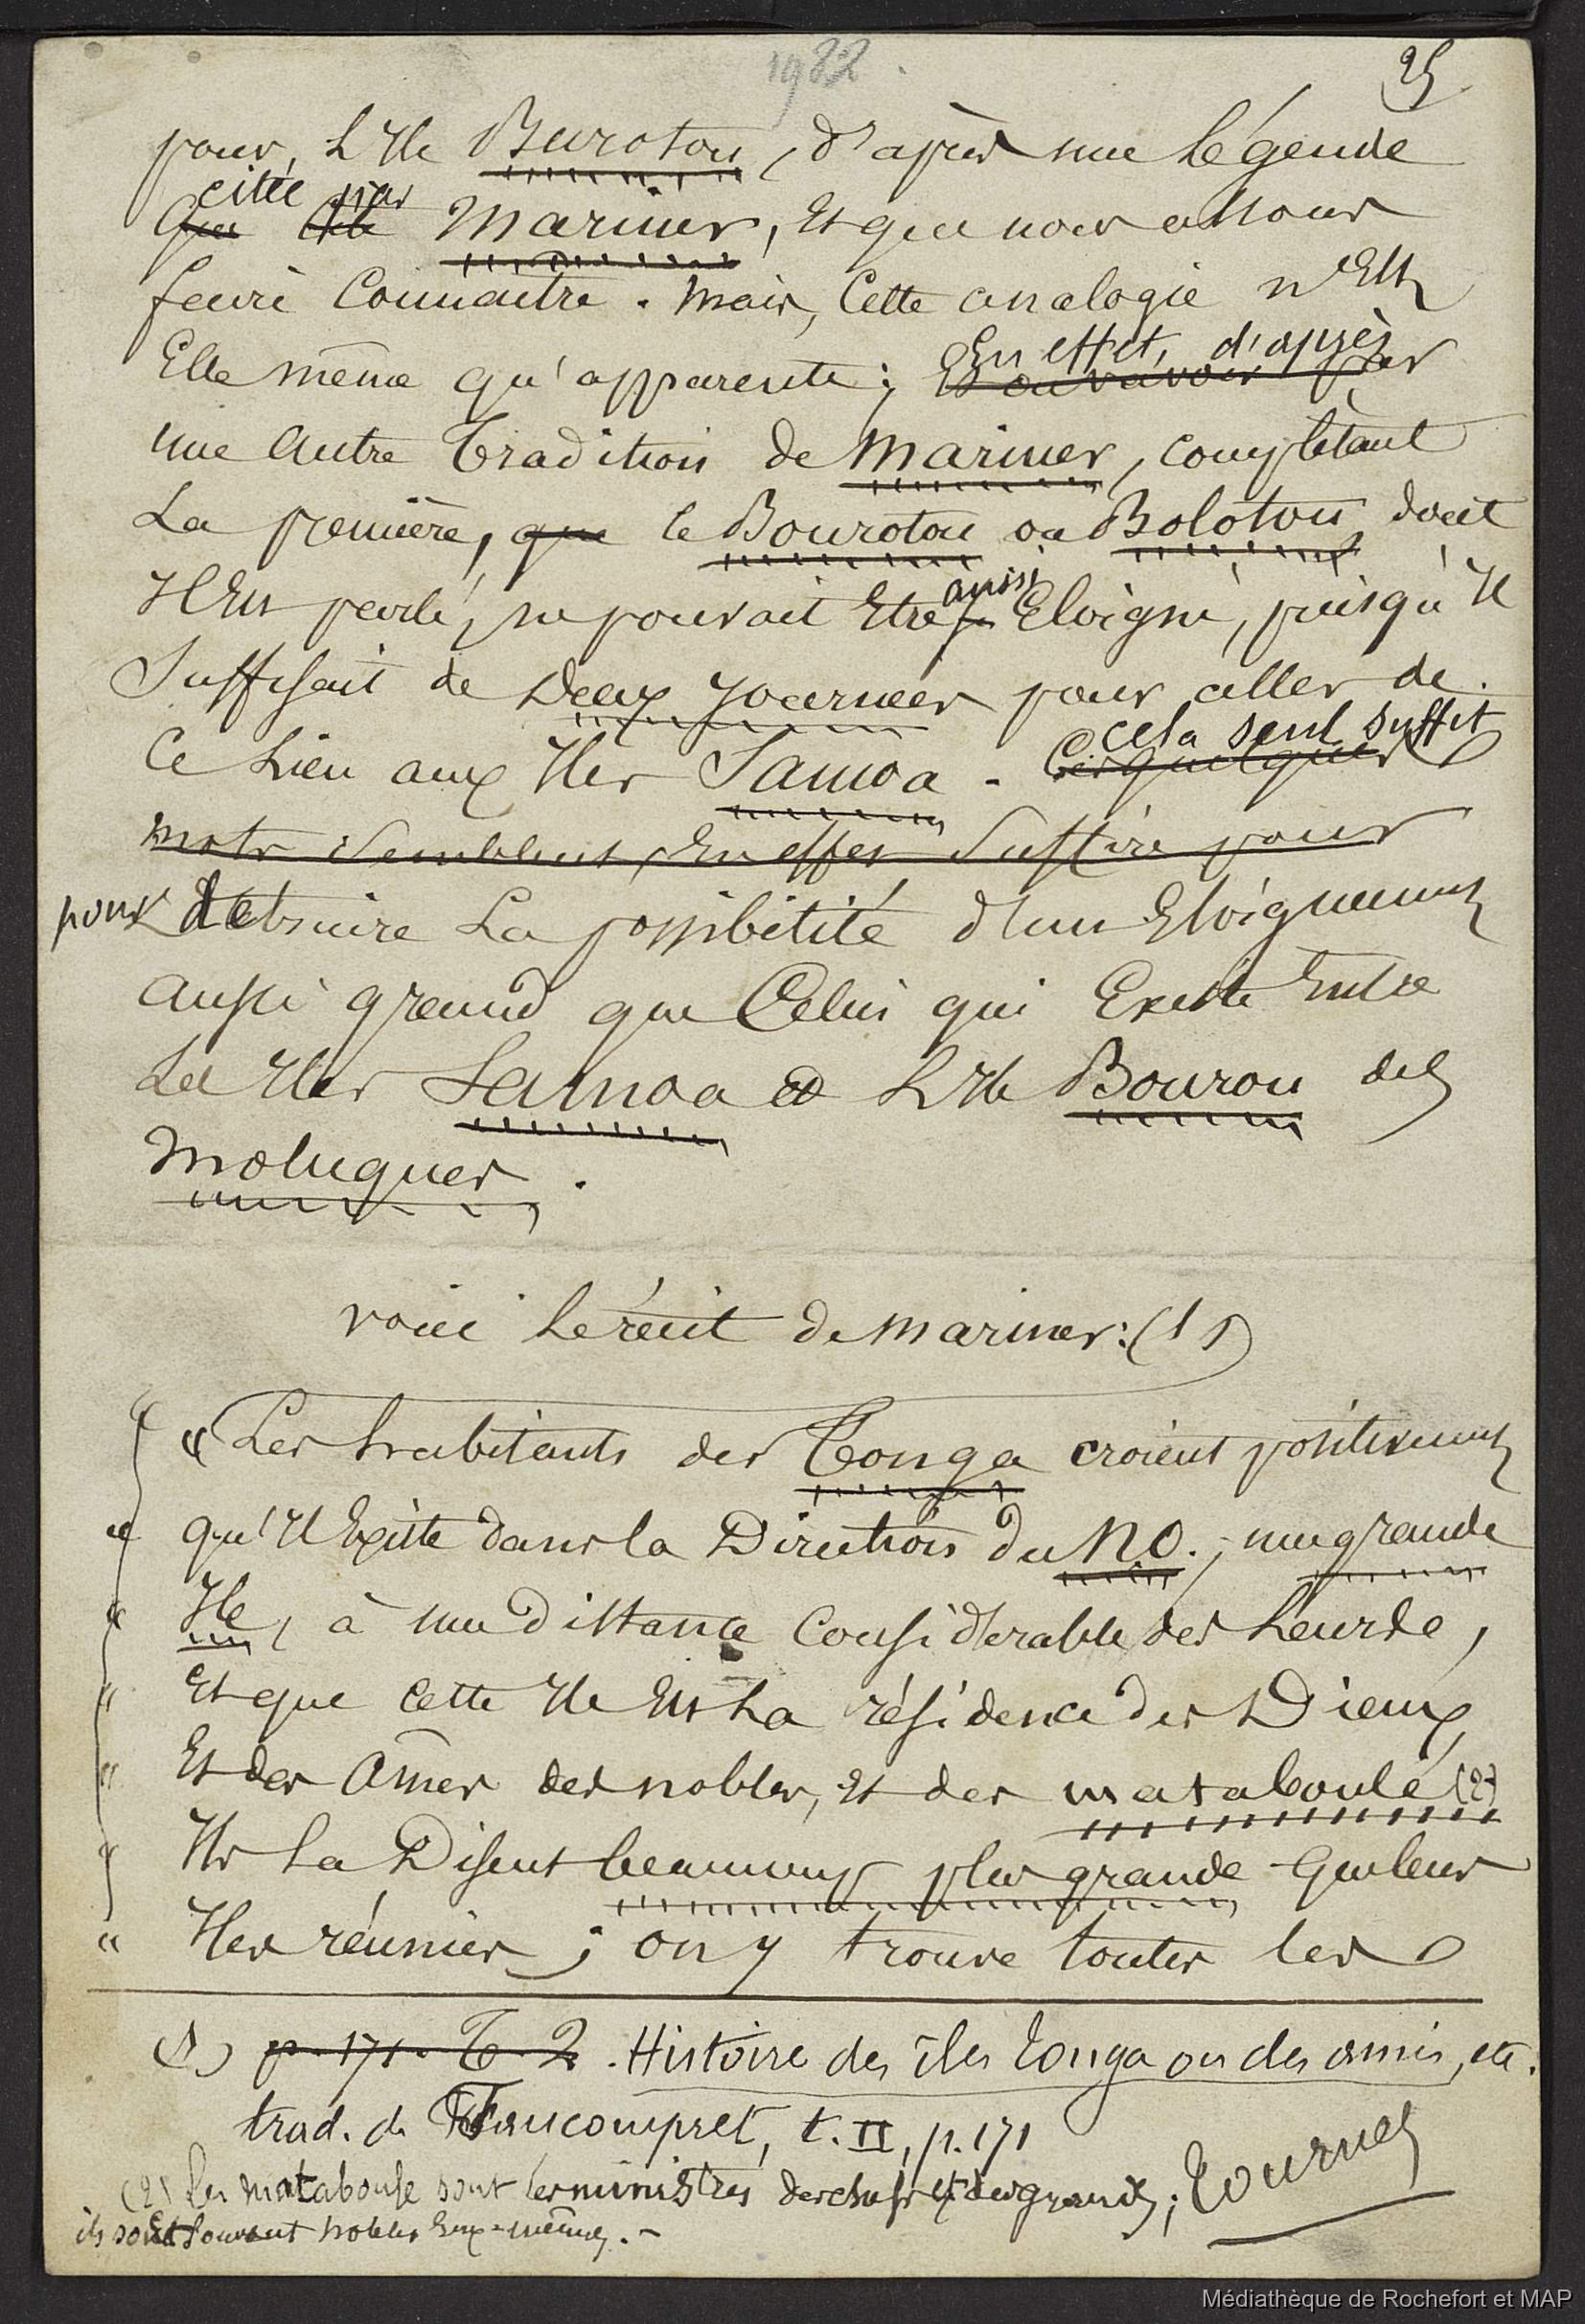 1982.
25
pour, L'Ile Burotou, d'après une Légende
citée par
que cite Mariner, Et que nous allons
faire Connaitre. Mais, Cette analogie n'Est
En effet, d'après
Elle même qu'apparente; Et par
une autre Tradition de Mariner, complètant
La première, que le Bourotou ou Bolotou dont
Il Est parlé, ne pouvait Etre aussi Eloigné, puisqu'Il
Suffisait de Deux Journées pour aller de
Ce Lieu aux Iles Samoa. cela seul suffit
Ces quelques
mots semblent, En effet, Suffire pour
pour détruire La possibilité d'un Eloignement
aussi grand que Celui qui Existe Entre
Les Iles Samoa et L'Ile Bourou des
Moluques.
voici Le récit de Mariner: (1)
« Les habitants des Tonga croient positivement
« qu'Il Existe dans la Direction du NO., une grande
« Ile, à une distance Considérable des Leurs,
« Et que Cette Ile Est La résidence des Dieux,
« Et des Ames des nobles, Et des mataboulé (2)
« Ils La Disent beaucoup plus grande que leurs
« Iles réunies; on y trouve toutes les
(1) p. 171. T. 2. Histoire des îles Tonga ou des amis, etc.
trad. de Faucompret, t. II, p. 171
(2) Les mataboule sont les ministres des chefs et des grands;
ils sont Souvent nobles Eux-mêmes. —
Tournez